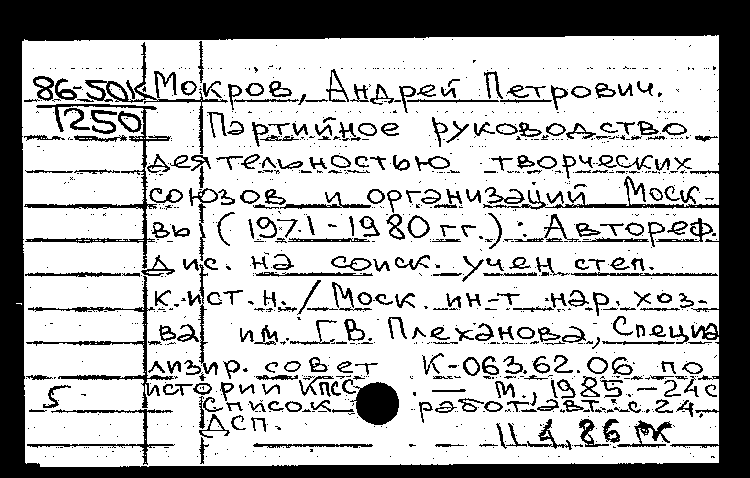 86-50К Мокров, Андрей Петрович.
1250 Партийное руководство
деятельностью творческих
союзов и организаций Моск-
вы (1971-1980 гг.) : Автореф.
дис. на соиск. учен степ.
к.ист.н. / Моск. ин-т нар. хоз-
ва им. Г.В. Плеханова, Специа
лизир. совет К-063.62.06 по
истории КПСС. — М., 1985. - 24с
5 Список работ авт.: с.24.
ДСП.
11.4.86